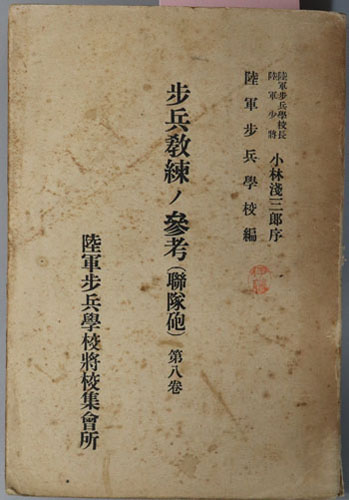 陸軍步兵學校長
陸軍少將
小林淺三郎序
陸軍步兵學校編
步兵敎練ノ參考(聯隊砲) 第八卷
陸軍步兵學校將校集會所